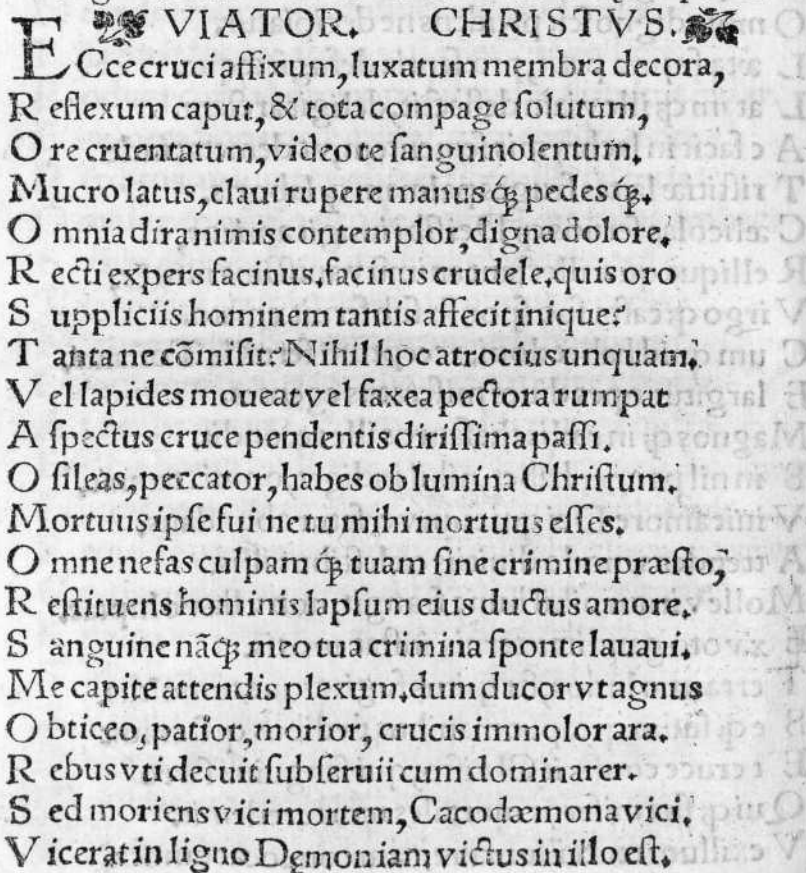 VIATOR. CHRISTVS.
ECce cruci affixum, luxatum membra decora,
R eflexum caput, & tota compage ſolutum,
O re cruentatum, video te ſanguinolentum.
Mucro latus, claui rupere manus ꝗ; pedes ꝗ;.
O mnia dira nimis contemplor, digna dolore.
R ecti expers facinus, facinus crudele, quis oro
S uppliciis hominem tantis affecit inique?
T anta ne cōmiſit? Nihil hoc atrocius unquam.
V el lapides moueat vel ſaxea pectora rumpat
A ſpectus cruce pendentis diriſſima paſſi.
O ſileas, peccator, habes ob lumina Chriſtum.
Mortuus ipſe fui ne tu mihi mortuus eſſes.
O mne nefas culpam ꝗ; tuam ſine crimine præſto,
R eſtituens hominis lapſum eius ductus amore.
S anguine nāꝗ; meo tua crimina ſponte lauaui.
Me capite attendis plexum, dum ducor vt agnus
O bticeo, patior, morior, crucis immolor ara.
R ebus vti decuit ſubſeruii cum dominarer.
S ed moriens vici mortem, Cacodæmona vici.
V icerat in ligno Dęmon iam victus in illo eſt.